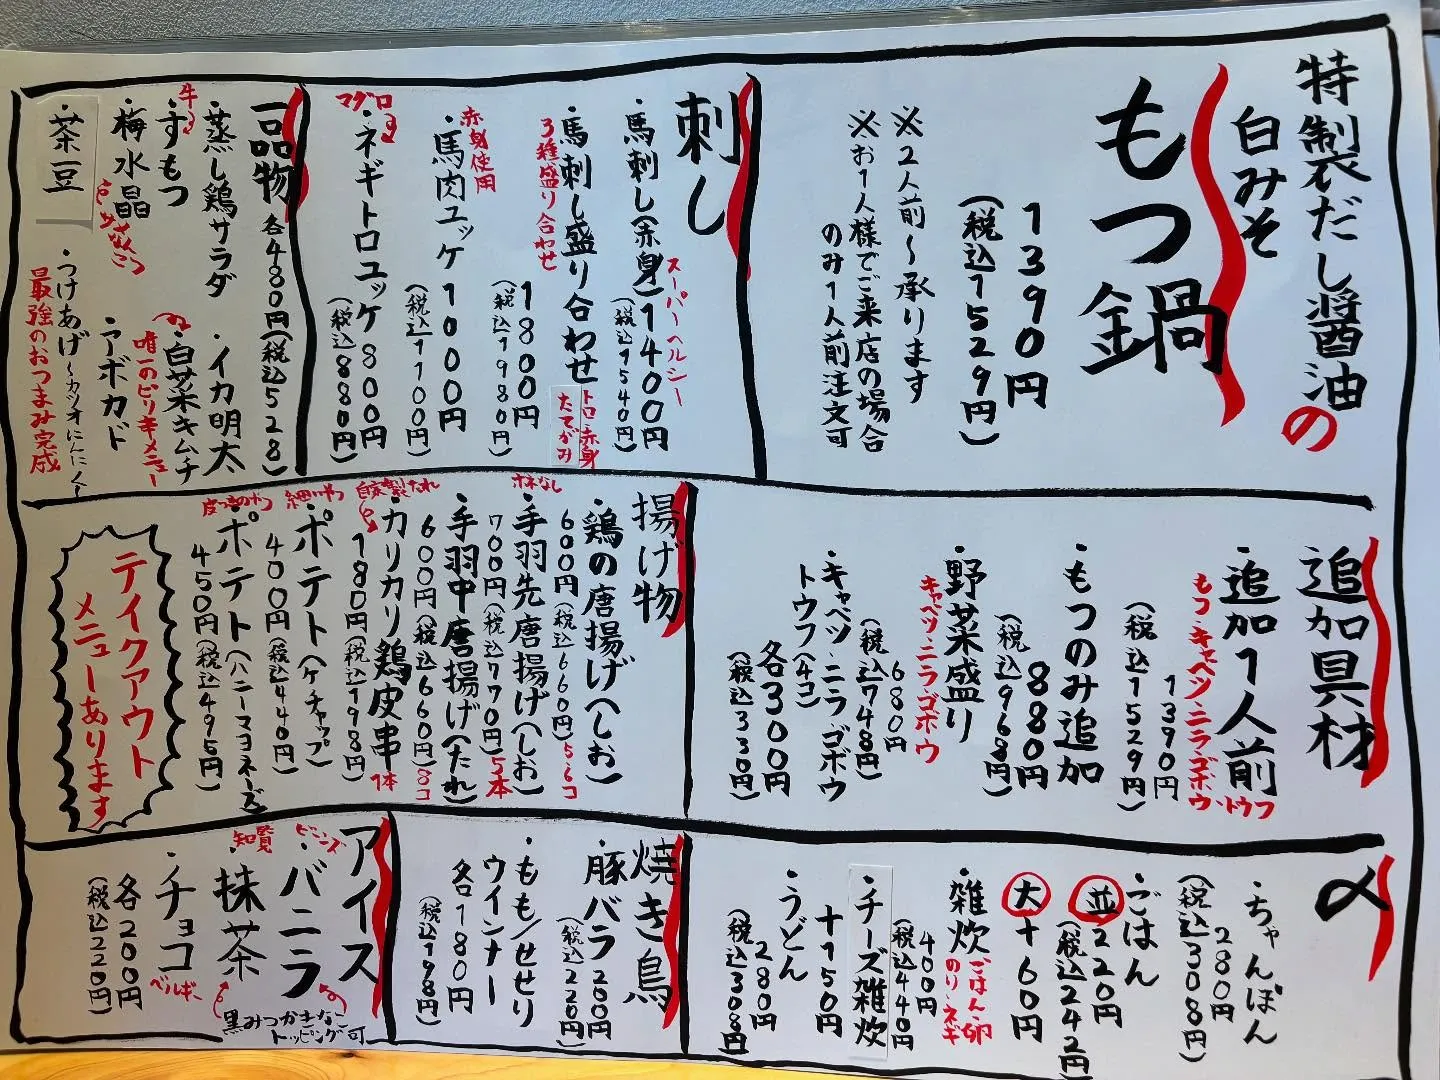 特製だし醤油の
白みそ
もつ鍋
1390円
(税込1529円)
※2人前〜承ります
※お1人様でご来店の場合
のみ1人前注文可
刺し
・馬刺し(赤身)1400円
スーパーヘルシー
(税込1540円)
・馬刺し盛り合わせ
トロ・赤身
たてがみ
3種盛り合わせ
1800円
(税込1980円)
赤身使用
・馬肉ユッケ1000円
(税込1100円)
マグロ
・ネギトロユッケ800円
(税込880円)
一品物 各480円(税込528)
・蒸し鶏サラダ
・イカ明太
牛
・すもつ
・白菜キムチ
唯一のピリ辛メニュー
・梅水晶
・アボカド
・茶豆
・つけあげ〜カツオにんにく〜
最強のおつまみ完成
追加具材
・追加1人前
もつ・キャベツ・ニラ・ゴボウ・トウフ
1390円
(税込1529円)
・もつのみ追加
880円
(税込968円)
・野菜盛り
キャベツ・ニラ・ゴボウ
680円
(税込748円)
・キャベツ・ニラ・ゴボウ
トウフ(4コ)
各300円
(税込330円)
揚げ物
・鶏の唐揚げ(しお)
600円(税込660円)5、6コ
ホネなし
・手羽先唐揚げ(しお)
700円(税込770円)5本
・手羽中唐揚げ(たれ)
600円(税込660円)8コ
自家製たれ
・カリカリ鶏皮串
180円(税込198円)1本
細いやつ
・ポテト(ケチャップ)
400円(税込440円)
皮つきのやつ
・ポテト(ハニーマヨネーズ)
450円(税込495円)
テイクアウト
メニューあります
〆
・ちゃんぽん
280円
(税込308円)
・ごはん
並 220円
(税込242円)
大 +60円
・雑炊
ごはん・卵
のり・ネギ
400円
(税込440円)
・チーズ雑炊
+150円
・うどん
280円
(税込308円)
焼き鳥
・豚バラ200円
(税込220円)
・もも/せせり
ウインナー
各180円
(税込198円)
アイス
・バニラ
知覧
・抹茶
黒みつかきなこ
トッピング可
・チョコ
ベルギー
各200円
(税込220円)